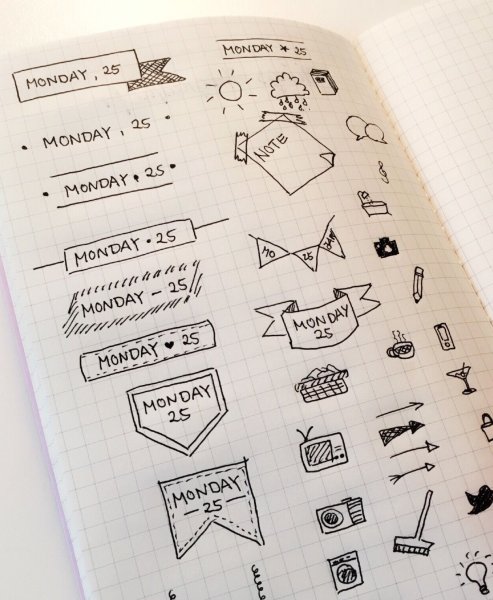 MONDAY, 25
MONDAY, 25
MONDAY • 25
MONDAY • 25
MONDAY – 25
MONDAY ♥ 25
MONDAY
25
MONDAY
– 25 –
MONDAY * 25
NOTE
MO
25
MONDAY
25